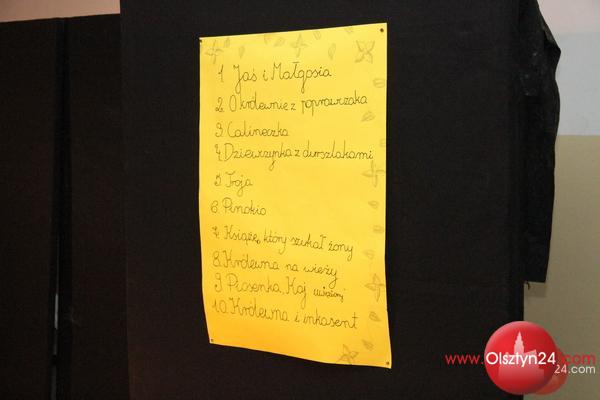 1. Jaś i Małgosia
2. O królewnie z poprawczaka
3. Calineczka
4. Dziewczynka z durszlakami
5. Troja
6. Pinokio
7. Książę, który szukał żony
8. Królewna na wieży
9. Piosenka, Kaj
10. Królewna i inkasent
www.Olsztyn24.com
24.com